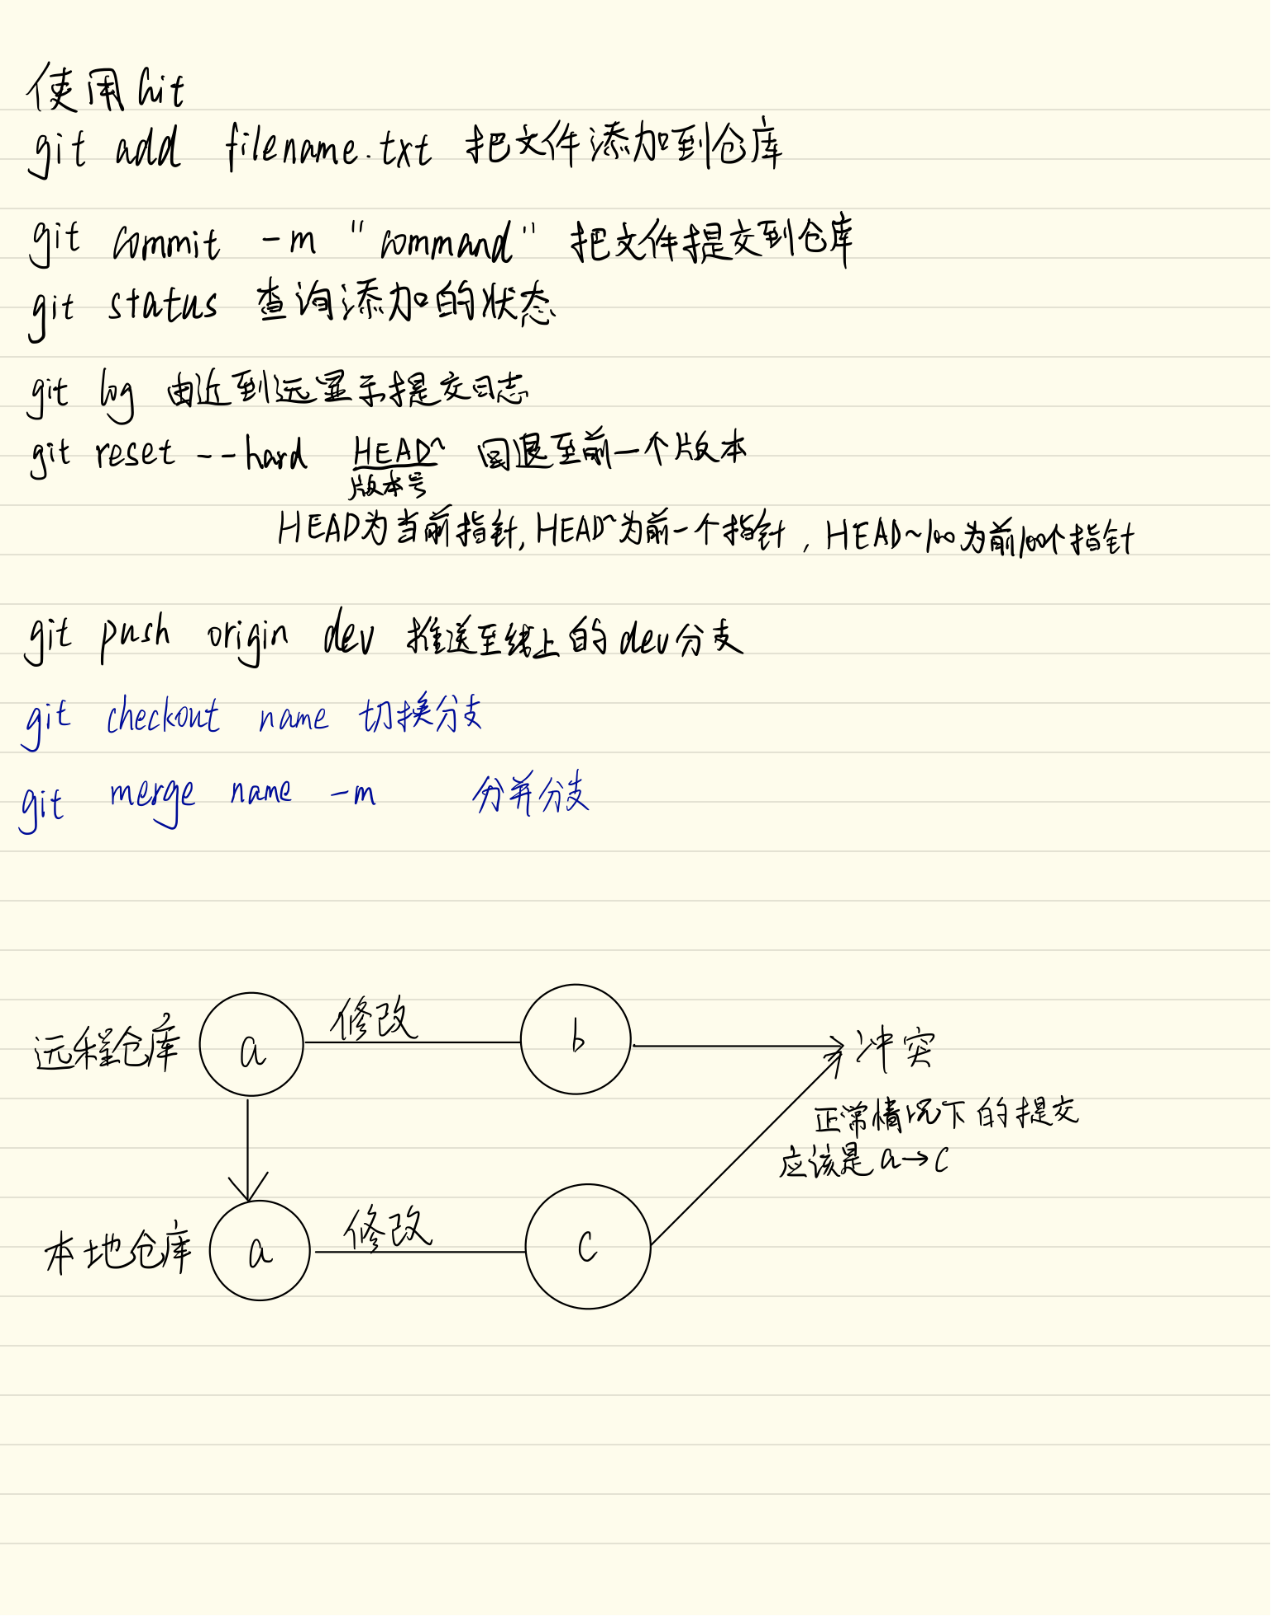 使用Git
git add filename.txt 把文件添加到仓库
git commit -m "command" 把文件提交到仓库
git status 查询添加的状态
git log 由近到远显示提交日志
git reset --hard HEAD~ 回退至前一个版本
版本号
HEAD为当前指针, HEAD~为前一个指针, HEAD~100为前100个指针
git push origin dev 推送至线上的dev分支
git checkout name 切换分支
git merge name -m 分并分支
远程仓库 a 修改 b 冲突
正常情况下的提交
应该是a→c
本地仓库 a 修改 c